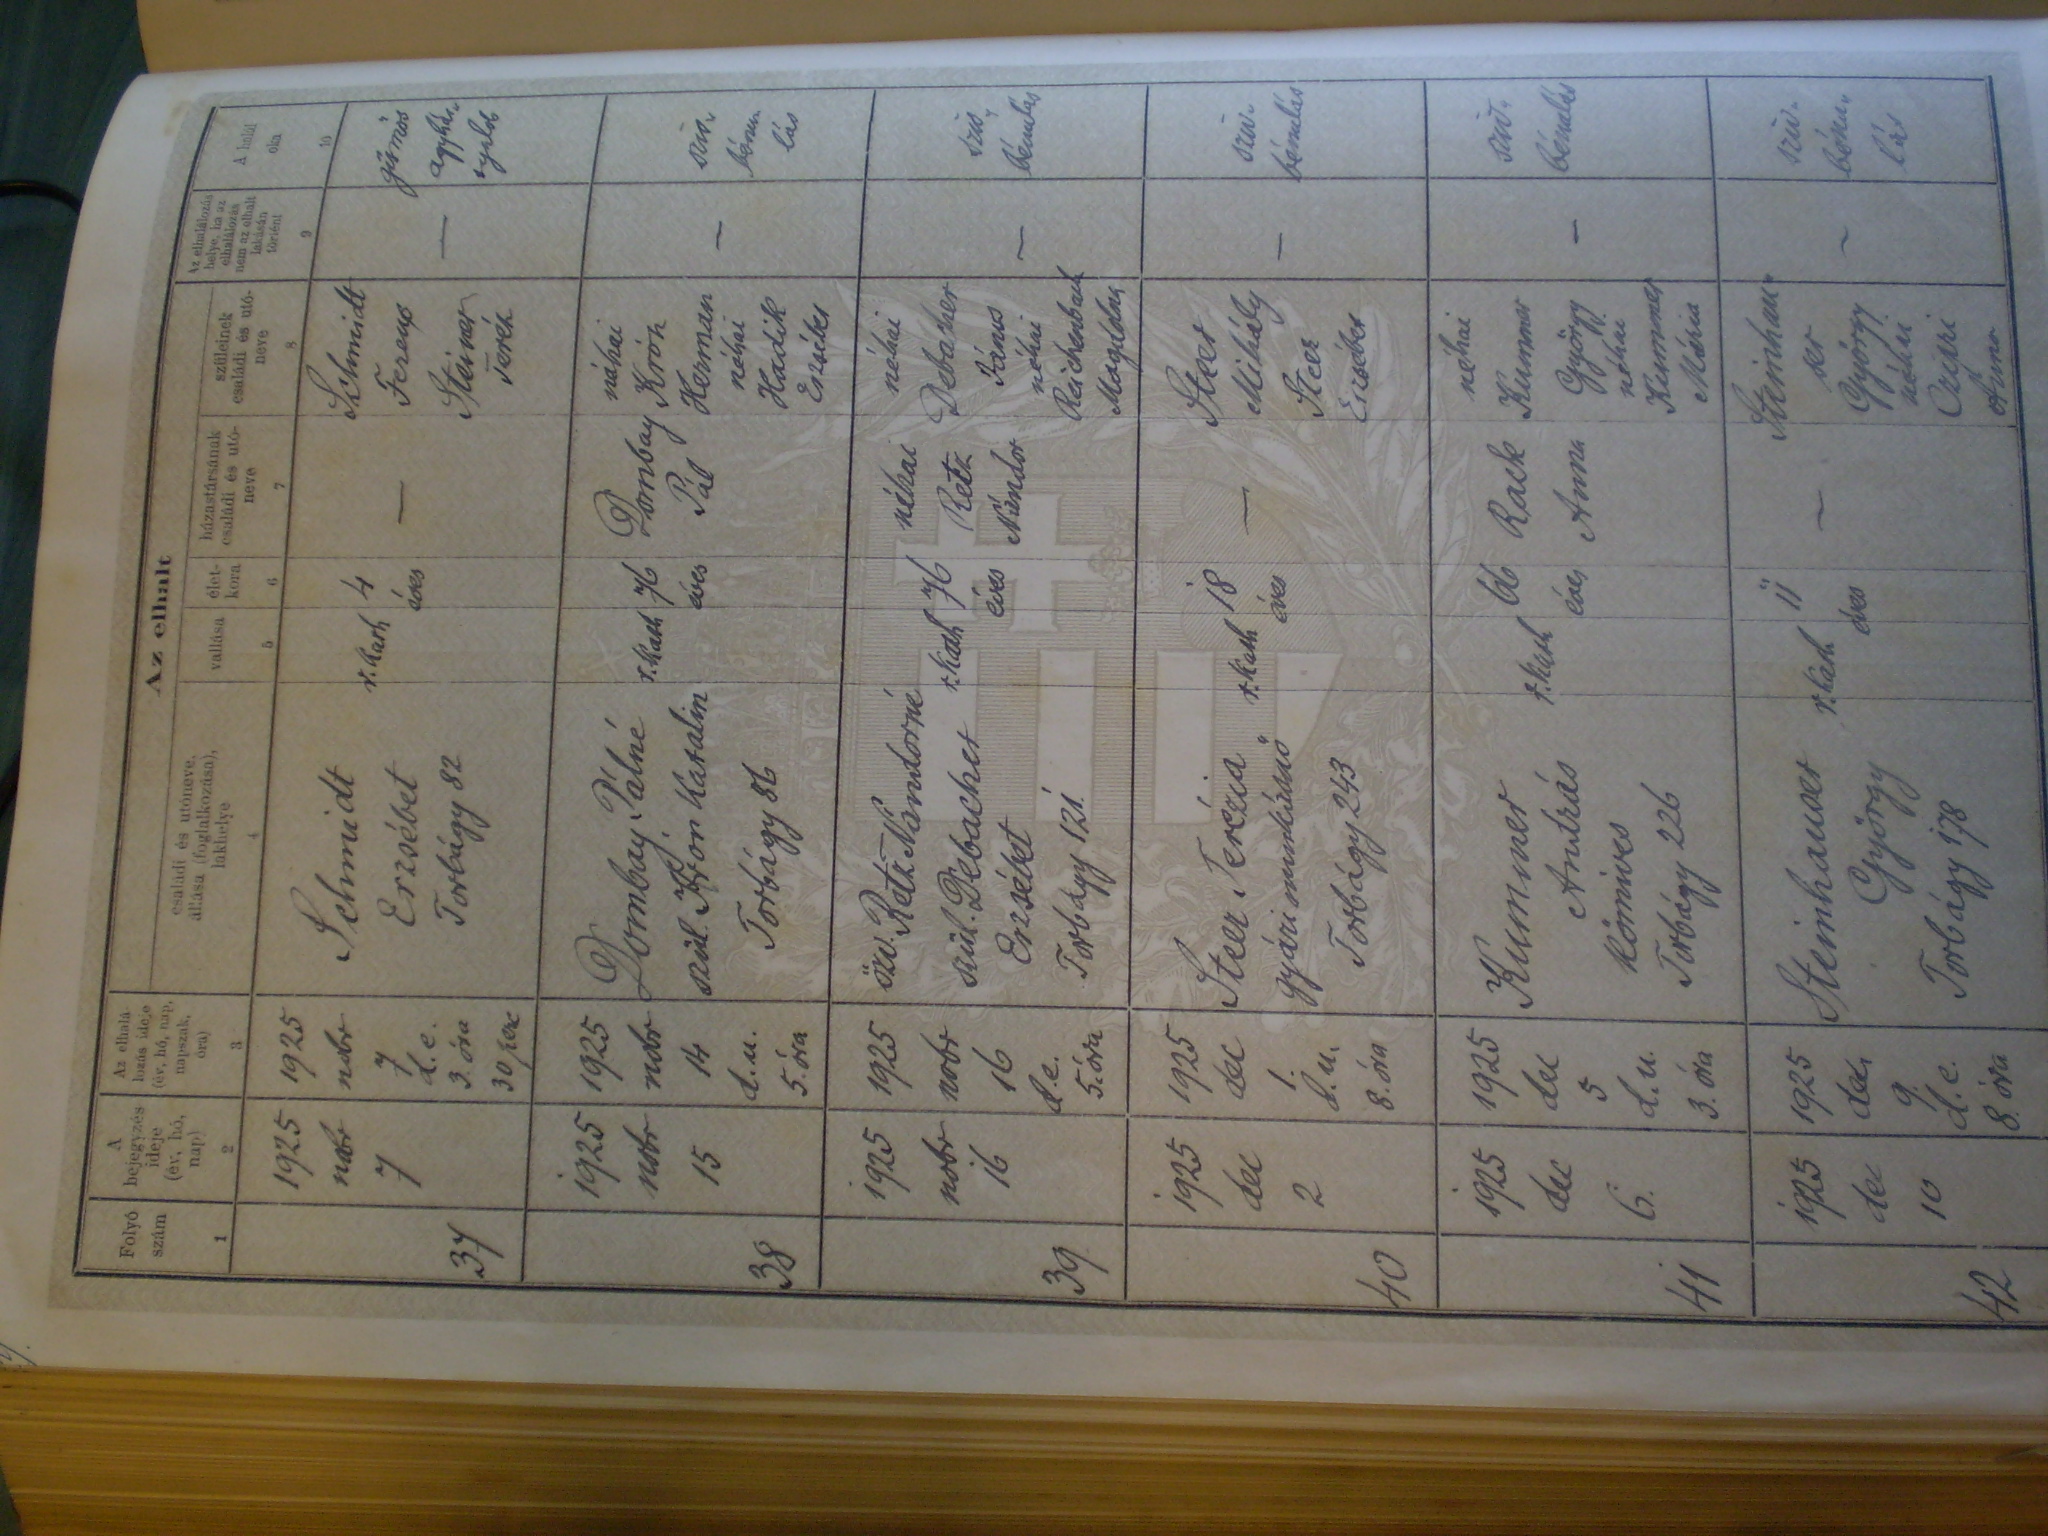 Az elhalt
Folyó
szám
A
bejegyzés
ideje
(év, hó,
nap)
Az elhalá-
lozás ideje
(év, hó, nap,
napszak,
óra)
családi és utóneve,
állása (foglalkozása),
lakhelye
vallása
élet-
kora
házastársának
családi és utó-
neve
szüleinek
családi és utó-
neve
Az elhalálozás
helye, ha az
elhalálozás
nem az elhalt
lakásán
történt
A halál
oka
1
2
3
4
5
6
7
8
9
10
37
1925
nobr
7
1925
nobr
7
d.e.
3. óra
30 perc
Schmidt
Erzsébet
Torbágy 82
r. kath
4
éves
—
Schmidt
Ferenc
Steiner
Teréz
—
gümős
agyhár-
38
1925
nobr
15
1925
nobr
14
d.u.
5. óra
Dombay Pálné
szül. Kron Katalin
Torbágy 86
r. kath
76
éves
Dombay
Pál
néhai
Krón
Herman
néhai
Hadik
Erzsébet
—
szív-
bénu-
lás
39
1925
nobr
16
1925
nobr
16
d.e.
5. óra
özv. Retk Nándorné
szül. Debacher
Erzsébet
Torbágy 121.
r. kath
76
éves
néhai
Retk
Nándor
néhai
Debacher
János
néhai
Reichenbach
Magdolna
—
szív-
bénulás
40
1925
dec
2
1925
dec
1.
d.u.
8. óra
Steer Terézia
gyári munkásnő
Torbágy 243
r. kath
18
éves
—
Steer
Mihály
Steer
Erzsébet
—
szív-
bénulás
41
1925
dec
6.
1925
dec
5
d.u.
3. óra
Kummer
András
kőmives
Torbágy 226
r. kath
66
éves
Rack
Anna
néhai
Kummer
György
néhai
Kimmer
Mária
—
szív-
bénulás
42
1925
dec
10
1925
dec.
9.
d.e.
8. óra
Steinhauser
György
Torbágy 178
r. kath
11
éves
—
Steinhau-
ser
György
néhai
Anna
—
szív-
bénu-
lás